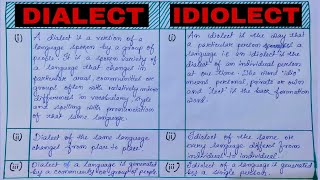 DIALECT
(i) A dialect is a version of a
language spoken by a group of
people. It is a spoken variety of
a language that changes by
particular area, communities or
groups often with relatively minor
differences in vocabulary, style
and spelling with pronunciation
of that same language.
(ii) Dialect of the same language
changes from place to place.
(iii) Dialect of a language is generated
by a community or group of people.
IDIOLECT
(i) An idiolect is the way that
a particular person speaks a
language i.e. an idiolect is the
dialect of an individual person
at one time. The word 'idio'
means personal, private or own
and 'lect' is the back formation
word.
(ii) Idiolect of the same or
any language differ from
individual to individual.
(iii) Idiolect of a language is generated
by a single person.